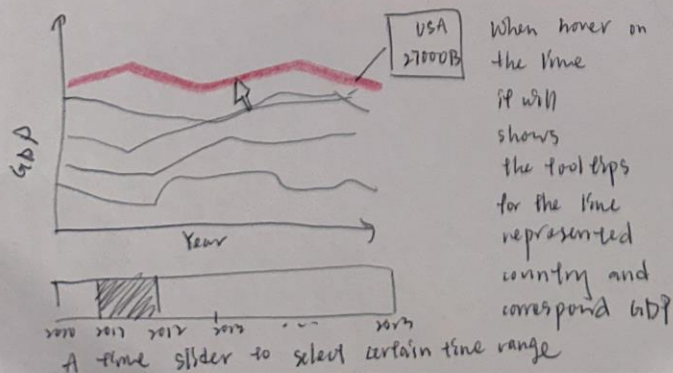 USA
27000B
When hover on
the line
it will
shows
the tooltips
for the line
represented
country and
correspond GDP
GDP
Year
2010 2011 2012 2013 ... 2023
A time slider to select certain time range